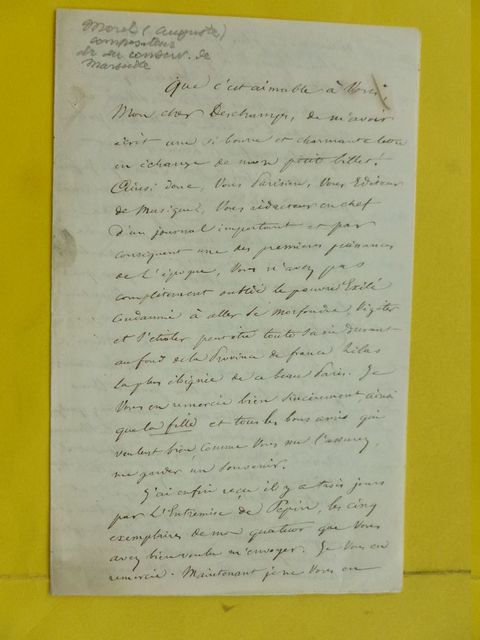 Morel (Auguste)
compositeur
dir du conserv. de
Marseille
Que c'est aimable à Vous
Mon cher Deschamps, de m'avoir
écrit une si bonne et charmante lettre
en échange de mon petit billet!
Ainsi donc, Vous Parisien, Vous Editeur
de Musique, Vous rédacteur en chef
d'un journal important et par
conséquent une des premières puissances
de l'époque, Vous n'avez pas
complètement oublié le pauvre Exilé
condamné à aller se morfondre, Végéter
et s'étioler, peut être toute sa vie durant
au fond de la Province de france hélas
la plus éloignée de ce beau Paris. Je
Vous en remercie bien sincèrement ainsi
que la fille et tous les bons amis qui
veulent bien comme Vous me l'assurez,
me garder un souvenir.
J'ai enfin reçu il y a trois jours
par l'Entremise de Pépin, les cinq
exemplaires de mon quatuor que Vous
avez bien voulu m'envoyer. Je Vous en
remercie. Maintenant je ne Vous en